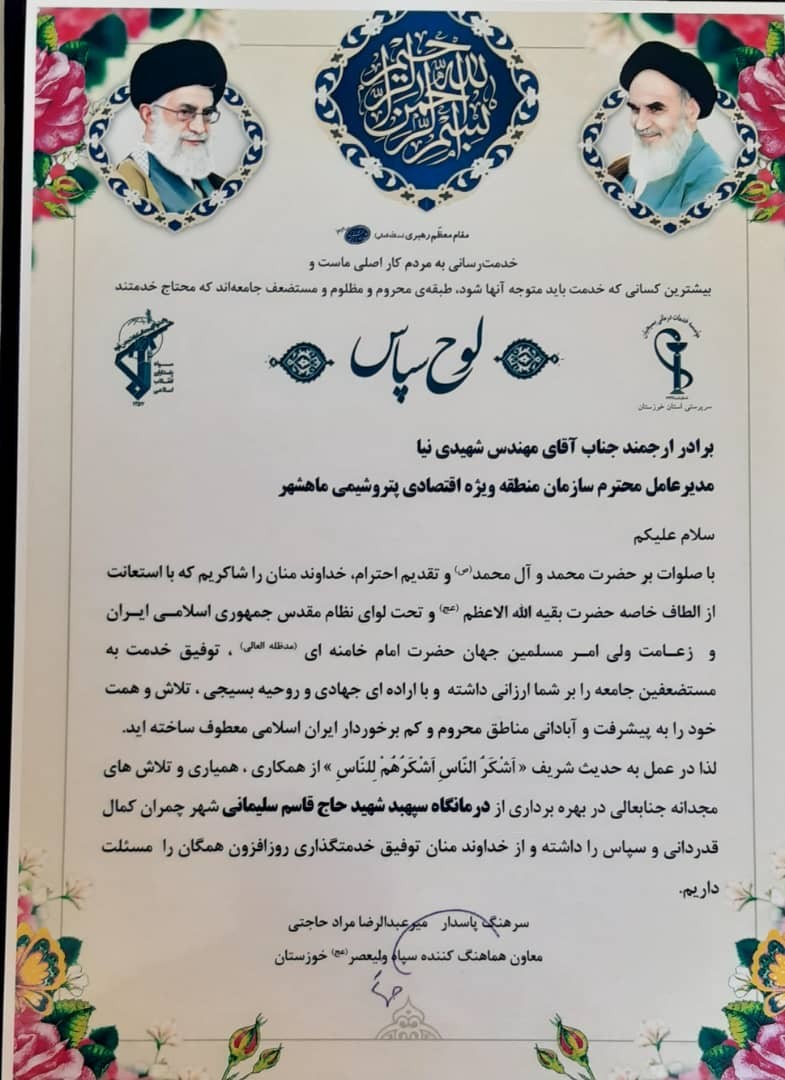 بسم الله الرحمن الرحیم
مقام معظّم رهبری
خدمت‌رسانی به مردم کار اصلی ماست و
بیشترین کسانی که خدمت باید متوجه آنها شود، طبقه‌ی محروم و مظلوم و مستضعف جامعه‌اند که محتاج خدمتند
مؤسسه خدمات درمانی بسیجیان
سرپرستی استان خوزستان
لوح سپاس
سپاه
پاسداران
انقلاب
اسلامی
برادر ارجمند جناب آقای مهندس شهیدی نیا
مدیرعامل محترم سازمان منطقه ویژه اقتصادی پتروشیمی ماهشهر
سلام علیکم
با صلوات بر حضرت محمد و آل محمد(ص) و تقدیم احترام، خداوند منان را شاکریم که با استعانت
از الطاف خاصه حضرت بقیه الله الاعظم (عج) و تحت لوای نظام مقدس جمهوری اسلامی ایران
و زعامت ولی امر مسلمین جهان حضرت امام خامنه ای (مدظله العالی) ، توفیق خدمت به
مستضعفین جامعه را بر شما ارزانی داشته و با اراده ای جهادی و روحیه بسیجی ، تلاش و همت
خود را به پیشرفت و آبادانی مناطق محروم و کم برخوردار ایران اسلامی معطوف ساخته اید.
لذا در عمل به حدیث شریف « اَشْکَرُ النّاسِ اَشْکَرُهُمْ لِلنّاسِ » از همکاری ، همیاری و تلاش های
مجدانه جنابعالی در بهره برداری از درمانگاه سپهبد شهید حاج قاسم سلیمانی شهر چمران کمال
قدردانی و سپاس را داشته و از خداوند منان توفیق خدمتگذاری روزافزون همگان را مسئلت
داریم.
سرهنگ پاسدار میرعبدالرضا مراد حاجتی
معاون هماهنگ کننده سپاه ولیعصر(عج) خوزستان